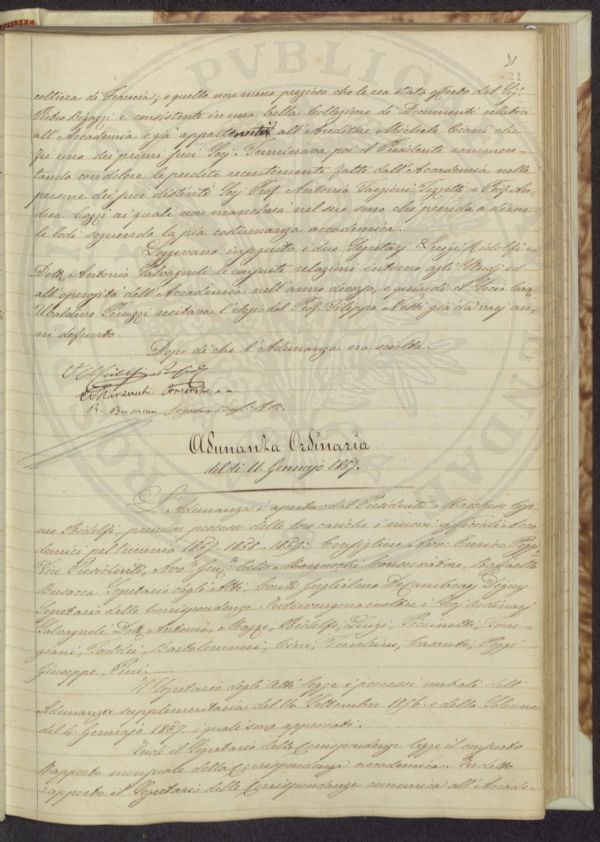 31
21
coltura di Francia; e quello non meno prezioso che le era stato offerto dal Sig.
Pietro Bigazzi e consistente in una bella Collezione di Documenti relativi
all'Accademia e già appartenuti all'Auditore Michele Ciani che
fu uno dei primi suoi Soci. Terminava poi il Presidente rammen-
tando con dolore le perdite recentemente fatte dall'Accademia nelle
persone dei suoi distinti Soci Prof. Antonio Targioni Tozzetti e Prof. An-
drea Cozzi ai quali non mancherà nel suo seno chi prenda a dirne
le lodi seguendo la pia costumanza accademica.
Leggevano in seguito i due Segretarj Luigi Ridolfi e
Dott. Antonio Salvagnoli le consuete relazioni intorno agli Studj ed
all'operosità dell'Accademia nell'anno decorso, e quindi il Socio Cav.
Ubaldino Peruzzi recitava l'elogio del Prof. Filippo Nesti già da varj an-
ni defunto.
Dopo di che l'Adunanza era sciolta.
R. Busacca Segretario degli Atti.
Adunanza Ordinaria
del dì 11. Gennajo 1857.
L'Adunanza è aperta dal Presidente Marchese Cosi-
mo Ridolfi, prendon possesso delle loro cariche i nuovi ufficiali Acca-
demici pel triennio 1857. 1858. 1859: Consigliere Avv. Enrico Poggi
Vice Presidente, Avv. Celso Marzucchi Conservatore, Raffaello
Busacca Segretario degli Atti, Conte Guglielmo De Cambray Digny
Segretario delle Corrispondenze. Intervengono inoltre i Soci Ordinarj
Salvagnoli Dott. Antonio, Mazzi, Ridolfi Luigi,
Taddei, Bartolommei, Casanti, Poggi
Giuseppe,
Il Segretario degli Atti legge i processi verbali dell'
Adunanza supplementaria del 14 Settembre 1856. e della Solenne
del 4. Gennajo 1857. i quali sono approvati.
Indi il Segretario delle Corrispondenze legge il consueto
Rapporto mensuale della Corrispondenza accademica. Un detto
rapporto il Segretario delle Corrispondenze comunica all'Accade-